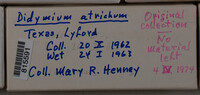 Didymium atrichum
Texas, Lyford
Coll. 20 X 1962
Wet 24 I 1963
Coll. Mary R. Henney
Original
collection
No
Material
left
1974